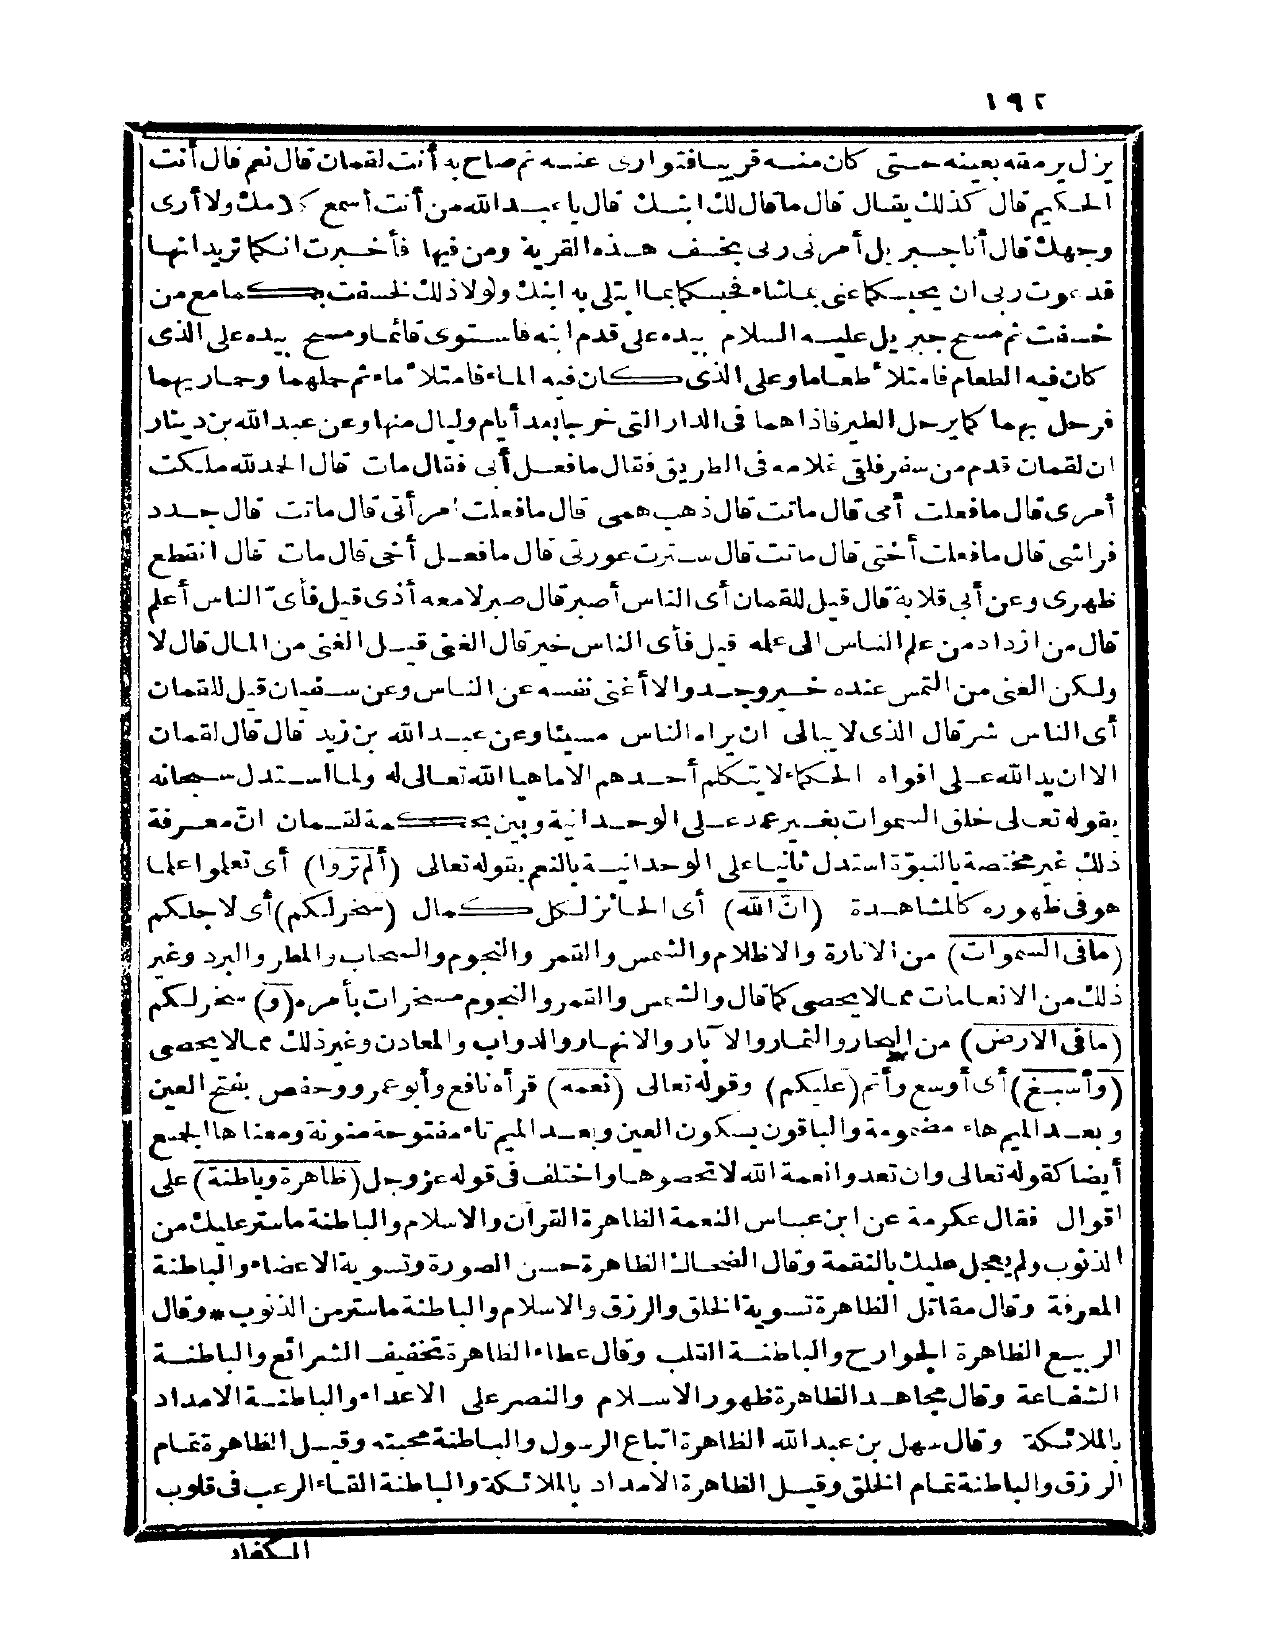 ١٩٢
يزل يرمقه بعينه حتى كان منه قريبا فتوارى عنه ثم صاح به أنت لقمان قال نعم قال أنت
الحكيم قال كذلك يقال قال ما قال لك ابنك قال يا عبد الله من أنت أسمع كلامك ولا أرى
وجهك قال أنا جبريل أمرنى ربى بخسف هذه القرية ومن فيها فأخبرت انكما تريدانها
فدعوت ربى ان يحبسكما عنى بماشاء فحبسكما بما ابتلى به ابنك ولولا ذلك لخسفت بكما مع من
خسفت ثم مسح جبريل عليه السلام بيده على قدم ابنه فاستوى قائما ومسح بيده على الذى
كان فيه الطعام فامتلأ طعاما وعلى الذى كان فيه الماء فامتلأ ماء ثم حملهما وحماريهما
فرحل بهما كما يرحل الطير فاذاهما فى الدار التى خرجا بعد أيام وليال منها وعن عبد الله بن دينار
ان لقمان قدم من سفر فلقى غلامه فى الطريق فقال ما فعل أبى فقال مات قال الحمد لله ملكت
أمرى قال ما فعلت أمى قال ماتت قال ذهب همى قال ما فعلت امرأتى قال ماتت قال جدد
فراشى قال ما فعلت أختى قال ماتت قال سترت عورتى قال ما فعل أخى قال مات قال انقطع
ظهرى وعن أبى قلابة قال قيل للقمان أى الناس أصبر قال صبر لا معه أذى قيل فأىّ الناس أعلم
قال من ازداد من علم الناس الى علمه قيل فأى الناس خير قال الغنى قيل الغنى من المال قال لا
ولكن الغنى من التمس عنده خير وجد والا أغنى نفسه عن الناس وعن سفيان قيل للقمان
أى الناس شر قال الذى لا يبالى ان يراه الناس مسيئا وعن عبد الله بن زيد قال قال لقمان
الا ان يد الله على افواه الحكماء لا يتكلم أحدهم الا ماهيا الله تعالى له ولما استدل سبحانه
بقوله تعالى خلق السموات بغير عمد على الوحدانية وبين بحكمة لقمان انّ معرفة
ذلك غير مختصة بالنبوّة استدل ثانيا على الوحدانية بالنعم بقوله تعالى (ألم تروا) أى تعلموا علما
هو فى ظهوره كالمشاهدة (انّ الله) أى الحائز لكل كمال (سخر لكم) أى لاجلكم
(ما فى السموات) من الانارة والاظلام والشمس والقمر والنجوم والسحاب والمطر والبرد وغير
ذلك من الانعامات مما لا يحصى كما قال والشمس والقمر والنجوم مسخرات بأمره (و) سخر لكم
(ما فى الارض) من البحار والثمار والآبار والانهار والدواب والمعادن وغير ذلك مما لا يحصى
(وأسبغ) أى أوسع وأتم (عليكم) وقوله تعالى (نعمه) قرأه نافع وأبو عمرو وحفص بفتح العين
وبعد الميم هاء مضمومة والباقون بسكون العين وبعد الميم تاء مفتوحة منونة ومعناها الجمع
أيضا كقوله تعالى وان تعدوا نعمة الله لا تحصوها واختلف فى قوله عز وجل (ظاهرة وباطنة) على
اقوال فقال عكرمة عن ابن عباس النعمة الظاهرة القرآن والاسلام والباطنة ماستر عليك من
الذنوب ولم يعجل عليك بالنقمة وقال الضحاك الظاهرة حسن الصورة وتسوية الاعضاء والباطنة
المعرفة وقال مقاتل الظاهرة تسوية الخلق والرزق والاسلام والباطنة ماستر من الذنوب * وقال
الربيع الظاهرة الجوارح والباطنة القلب وقال عطاء الظاهرة تخفيف الشرائع والباطنة
الشفاعة وقال مجاهد الظاهرة ظهور الاسلام والنصر على الاعداء والباطنة الامداد
بالملائكة وقال سهل بن عبد الله الظاهرة اتباع الرسول والباطنة محبته وقيل الظاهرة تمام
الرزق والباطنة تمام الخلق وقيل الظاهرة الامداد بالملائكة والباطنة القاء الرعب فى قلوب
الكفار